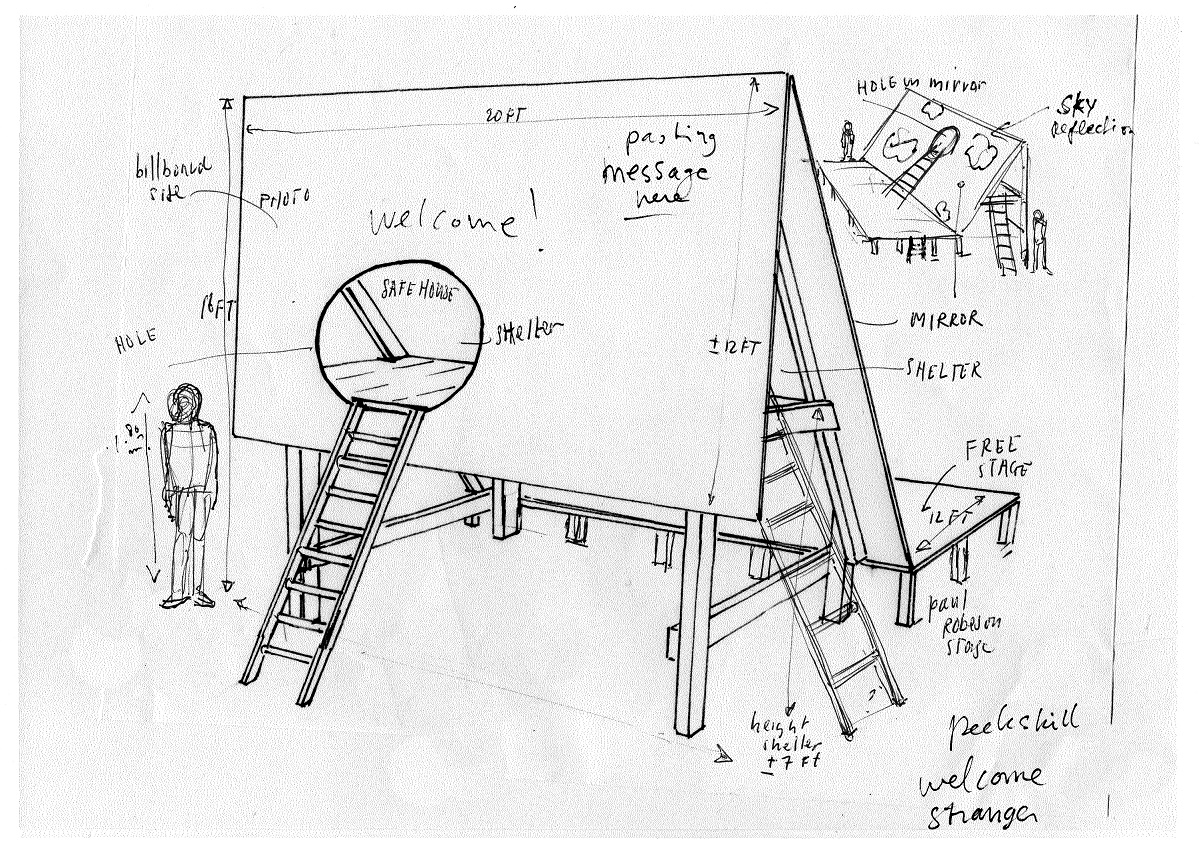 HOLE in mirror
SKY
reflection
20FT
pasting
message
here
billboard
side
PHOTO
welcome!
16FT
SAFE HOUSE
shelter
HOLE
±12FT
MIRROR
SHELTER
1.80
m.
FREE
STAGE
12FT
paul
Robeson
stage
height
shelter
±7 Ft
?
peekskill
welcome
stranger